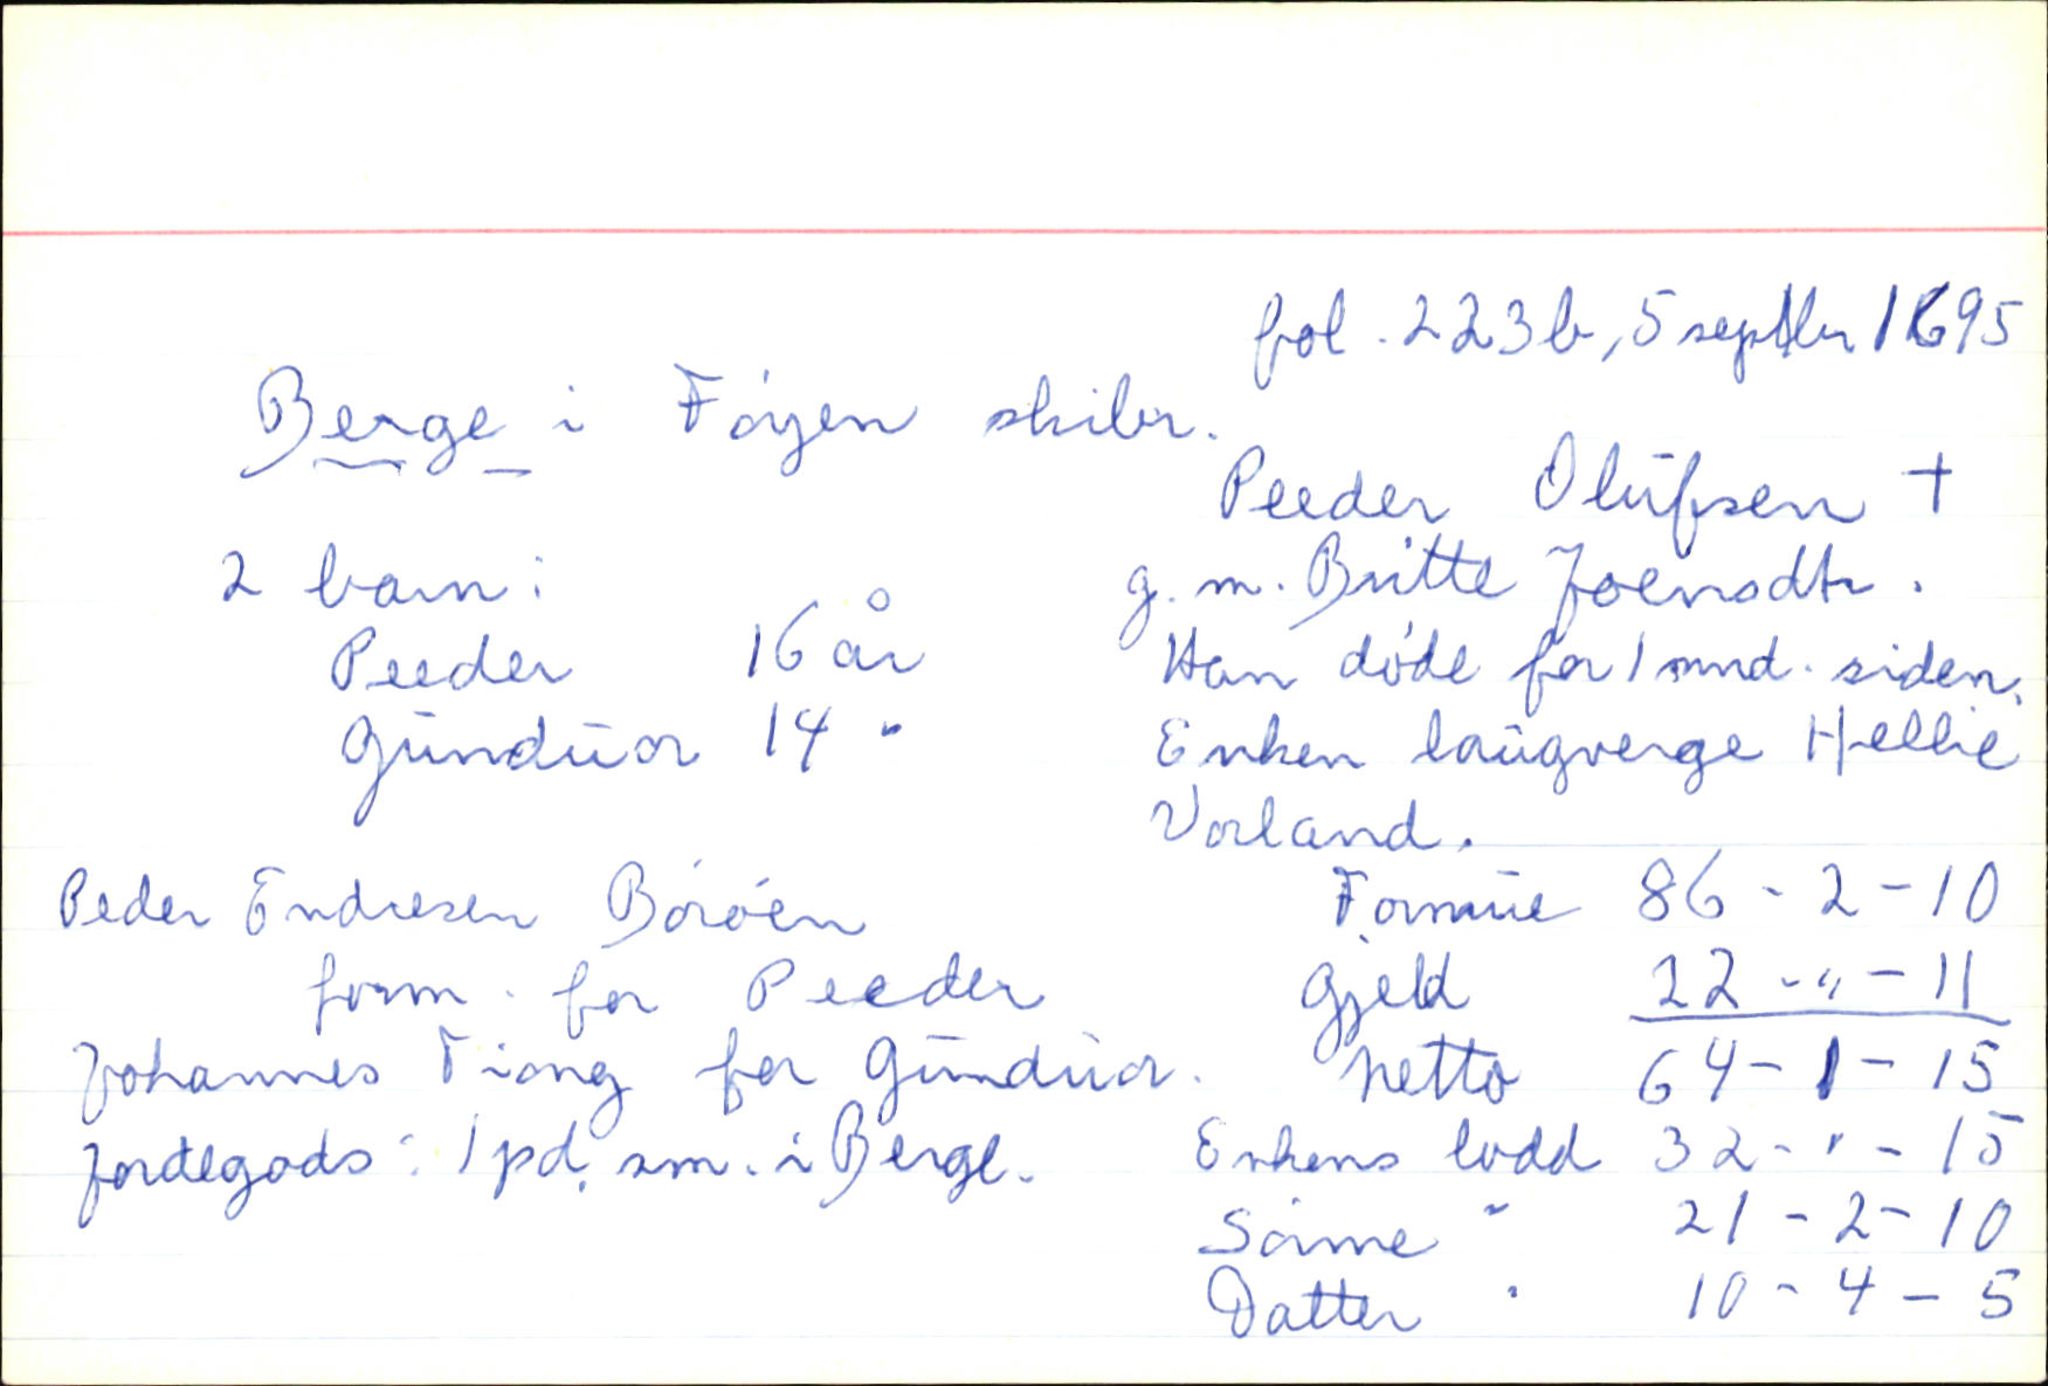 fol. 223b, 5 septbr 1695
Berge i Føyen skibr.
Peeder Olüfsen +
g. m. Britte Joensdtr.
Han døde for 1 mnd. siden.
Enken laugverge Hellie
Vorland.
2 barn:
Peeder 16 år
Gundüor 14 "
Peder Endresen Børøen
form. for Peeder
Johannes Tiong for Gundüor.
Jordegods: 1 pd. sm. i Berge.
Formüe 86 - 2 - 10
Gjeld 22 - " - 11
Netto 64 - 1 - 15
Enkens lodd 32 - " - 15
Sønne " 21 - 2 - 10
Datter " 10 - 4 - 5